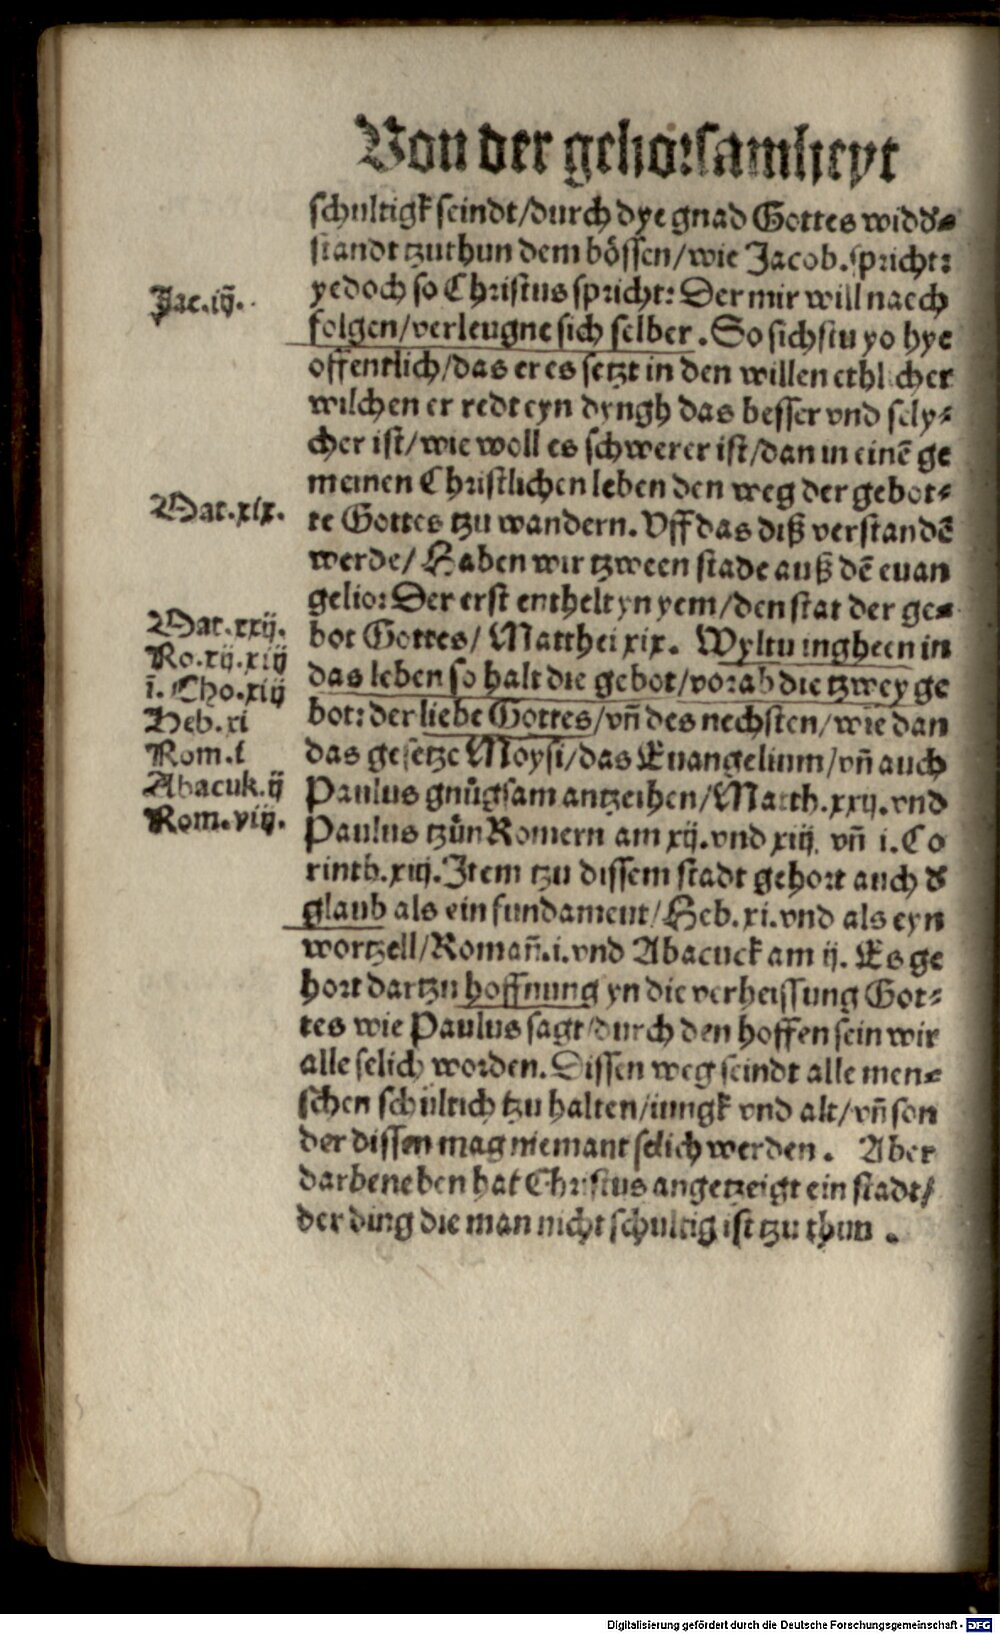 Von der gehorsamheyt
schultigk seindt/durch dye gnad Gottes widd'⸗
standt tzuthun dem bössen/wie Jacob.spricht:
yedoch so Christus spricht: Der mir will naech
folgen/verleugne sich selber. So sichstu yo hye
offentlich/das er es setzt in den willen ethlicher
wilchen er redt eyn dyngh das besser vnd sely⸗
cher ist/wie woll es schwerer ist/dan in einē ge
meinen Christlichen leben den weg der gebot⸗
te Gottes tzu wandern. Vff das diß verstandē
werde/ Haben wir tzween stade auß dē euan
gelio: Der erst entheltyn yem/den stat der ge⸗
bot Gottes/ Matthei xix. Wyltu ingheen in
das leben so halt die gebot/vorab die tzwey ge
bot: der liebe Gottes/vn̄ des nechsten/wie dan
das gesetze Moysi/das Euangelium/vn̄ auch
Paulus gnůgsam antzeihen/Matth.xxij.vnd
Paulus tzůn Romern am xij.vnd xiij. vn̄ i.Co
rinth.xiij.Item tzu dissem stadt gehort auch d'
glaub als ein fundament/Heb.xi.vnd als eyn
wortzell/Roman̄.i.vnd Abacuck am ij. Es ge
hort dartzu hoffnung yn die verheissung Got⸗
tes wie Paulus sagt/durch den hoffen sein wir
alle selich worden. Dissen weg seindt alle men⸗
schen schultich tzu halten/iungk vnd alt/vn̄ son
der dissen mag niemant selich werden. Aber
darbeneben hat Christus angetzeigt ein stadt/
der ding die man nicht schultig ist tzu thun .
Jac.iij.
Mat.xix.
Mat.xxij.
Ro.xij.xiij
i. Cho.xiij
Heb.xi
Rom.i
Abacuk.ij
Rom.viij.
Digitalisierung gefördert durch die Deutsche Forschungsgemeinschaft - DFG